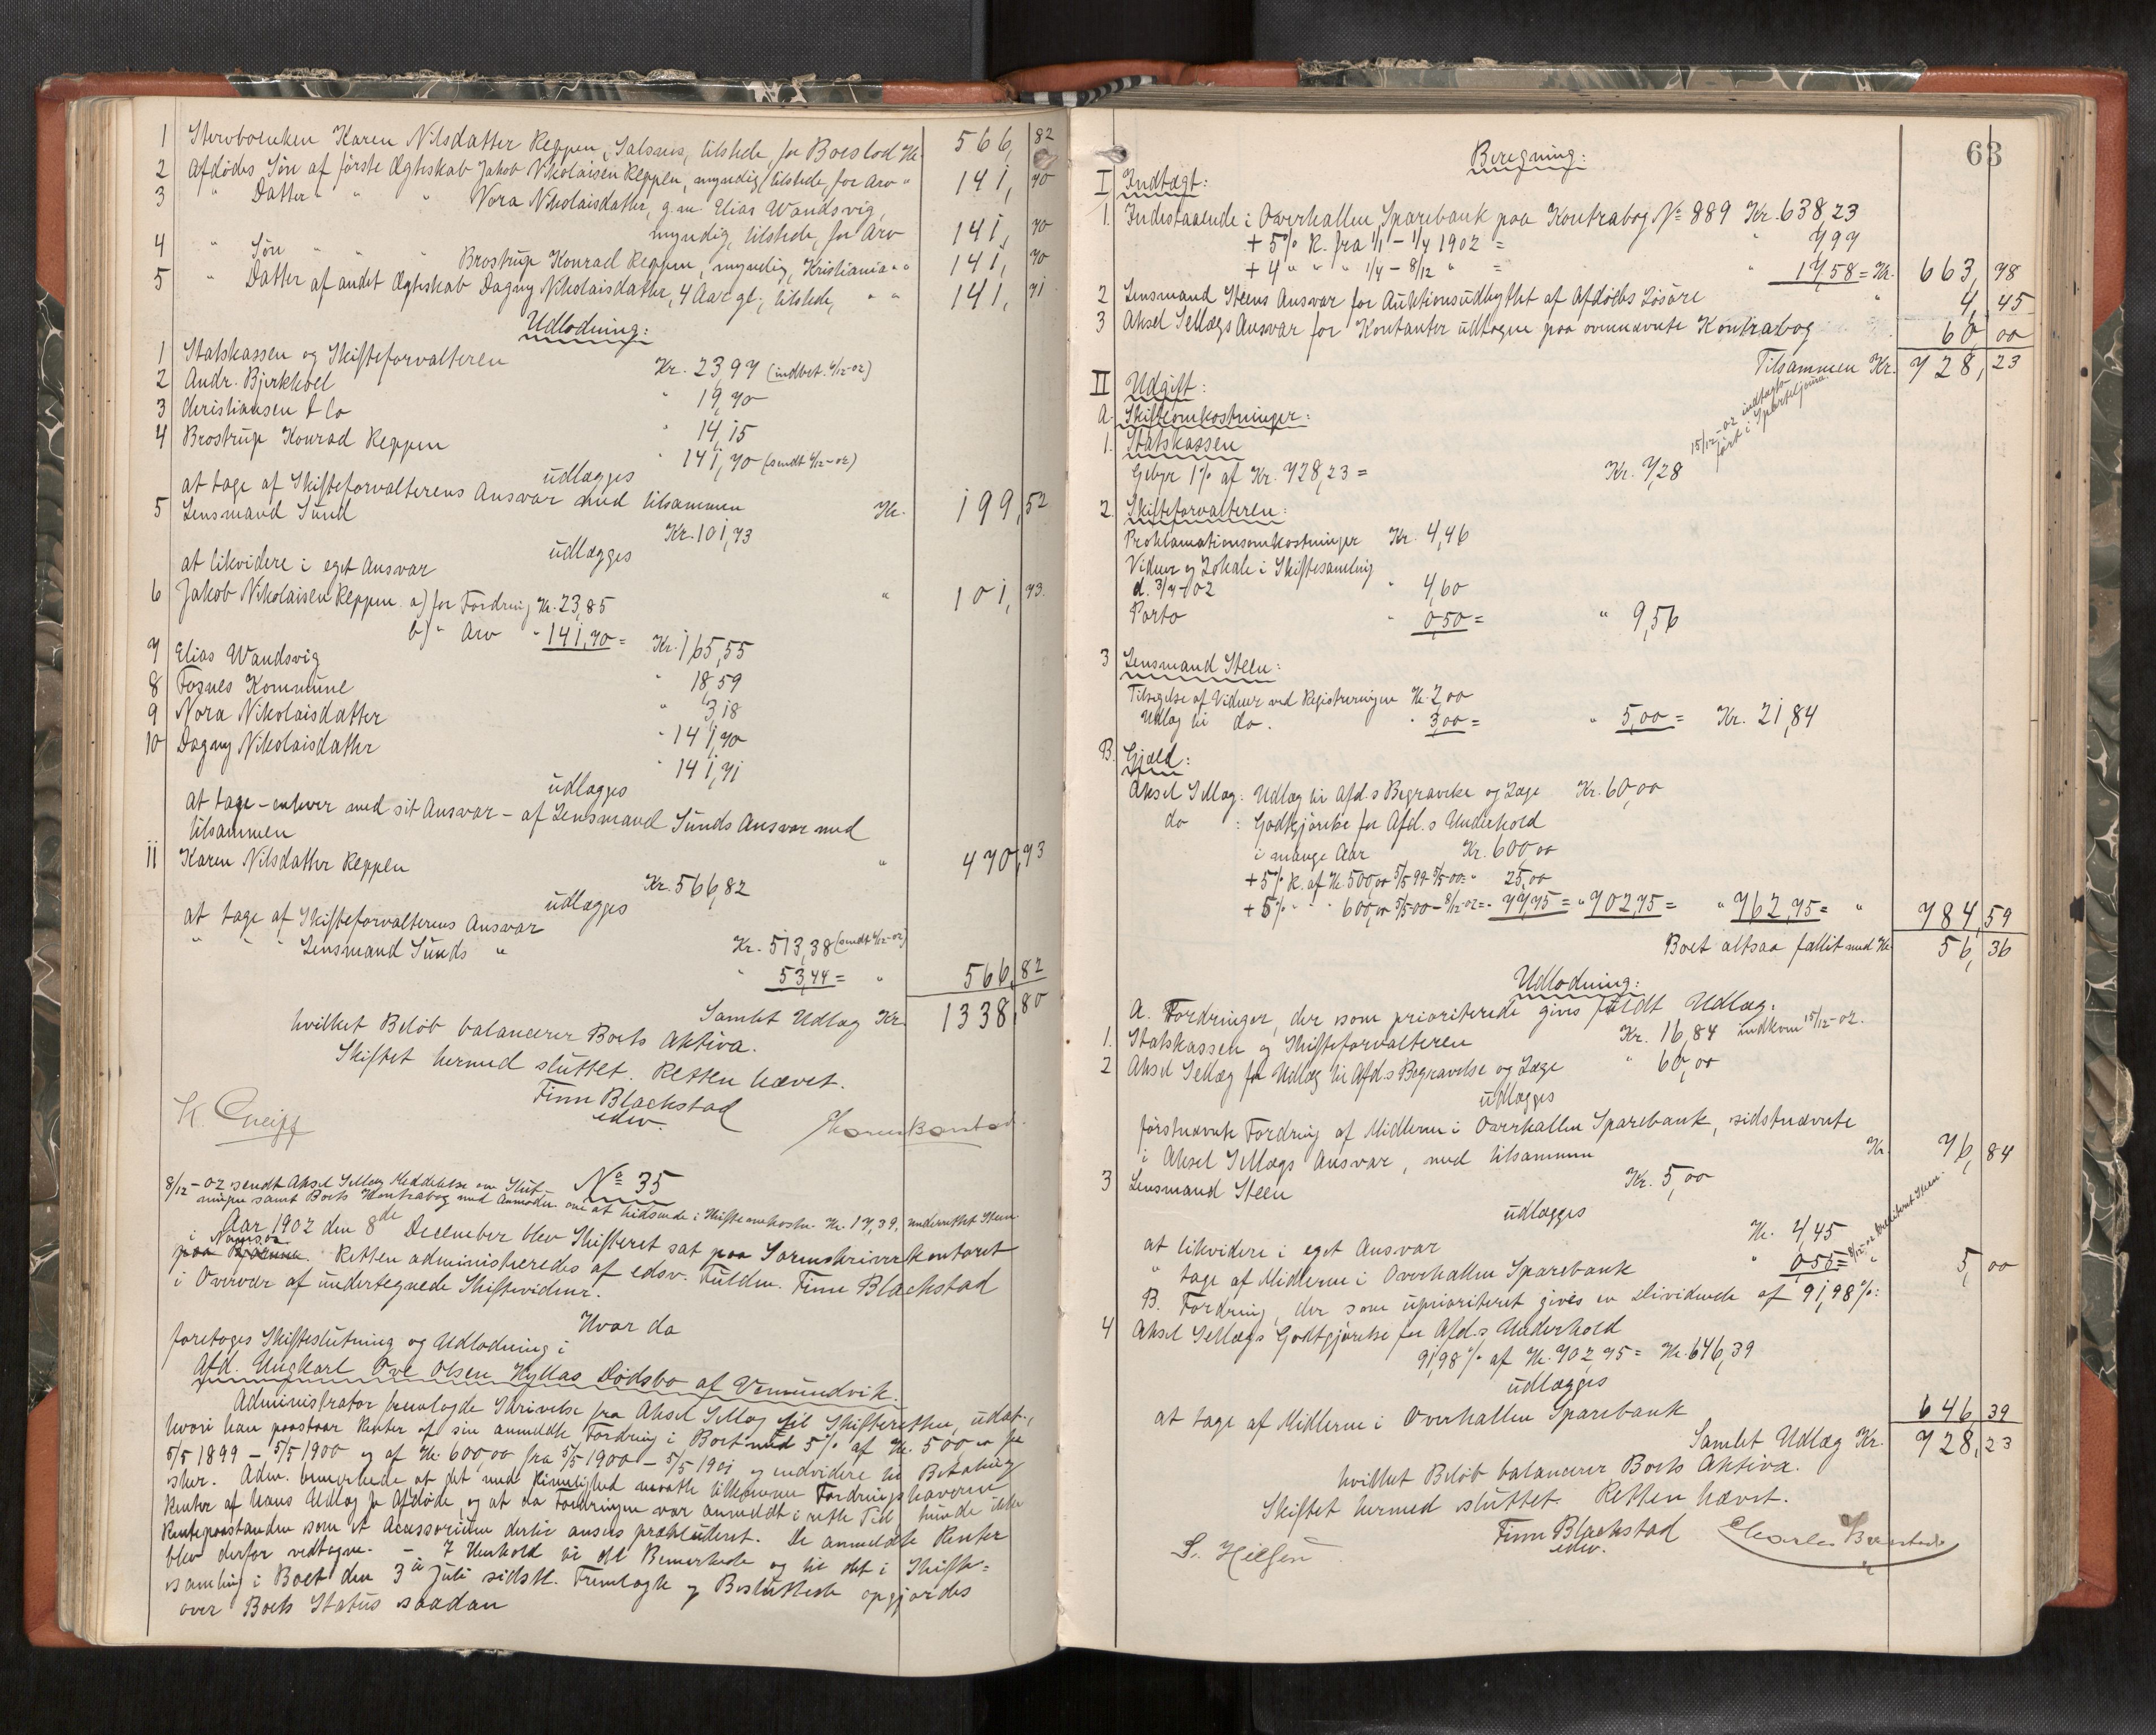 1 Stervboenken Karen Nilsdatter Reppen, Salsnes, tilstede, for Boeslod Kr. 566, 82
2 Afdödes Sön af förste Ægteskab Jakob Nikolaisen Reppen, myndig, tilstede, for Arv " 141, 70
3 " Datter " " " Nora Nikolaisdatter, g.m. Elias Wandsvig,
myndig, tilstede, for Arv 141, 70
4 " Sön " " " Brostrup Konrad Reppen, myndig, Kristiania " " 141, 70
5 " Datter af andet Ægteskab Dagny Nikolaisdatter, 4 Aar gl., tilstede, " " 141, 71
Udlodning:
1 Statskassen og Skifteforvalteren Kr. 23,97 (indbet. 4/12-02)
2 Andr. Bjerkhoel " 19,70
3 Christiansen & Co " 14,15
4 Brostrup Konrad Reppen " 141,70 (sendt 4/12-02)
udlægges
at tage af Skifteforvalterens Ansvar med tilsammen Kr. 199,52
5 Lensmand Sund Kr. 101,73
udlægges
at likvidere i eget Ansvar " 101, 73
6 Jakob Nikolaisen Reppen a) for Fordring Kr. 23,85
b) " Arv " 141,70 = Kr. 165,55
7 Elias Wandsvig " 18,59
8 Fosnes Kommune " 3,18
9 Nora Nikolaisdatter " 141,70
10 Dagny Nikolaisdatter " 141,71
udlægges
at tage - enhver med sit Ansvar - af Lensmand Sunds Ansvar med
tilsammen " 470,73
11 Karen Nilsdatter Reppen Kr. 566,82
udlægges
at tage af Skifteforvalterens Ansvar Kr. 513,38 (sendt 4/12-02)
" " " Lensmand Sunds " " 53,44 = " 566,82
Samlet Udlæg Kr. 1338,80
hvilket Belöb balancerer Boets Aktiva.
Skiftet hermed sluttet. Retten hævet.
Finn Blackstad
edsv.
8/12-02 sendt Aksel Sellæg Meddelelse om Slut-
ningen samt Boets Kontrabog med Anmodn. om at hidsende i Skifteomkostn. Kr. 17,39, underrettet Steen
No 35
Aar 1902 den 8de December blev Skifteret sat paa Sorenskriverkontoret
i Namsos. Retten administreredes af edsv. Fuldm. Finn Blackstad
i Overvær af undertegnede Skiftevidner.
Hvor da
foretoges Skifteslutning og Udlodning i
Afd. Ungkarl Ove Olsen Hyllas Dödsbo af Vemundvik.
Administrator fremlagde Skrivelse fra Aksel Sellæg til Skifteretten, udat.,
hvori han paastaar Renter af sin anmeldte Fordring i Boet med 5% af Kr. 500,00 fra
5/5 1899 - 5/5 1900 og af Kr. 600,00 fra 5/5 1900 - 5/5 1901 og endvidere til Betaling
sker. Adm. bemerkede at det med Rimelighed maatte tilkomme Fordringshaveren
Renter af hans Udlæg for Afdöde, og at da Fordringen var anmeldt i rette Tid kunde ikke
Rentepaastanden som et Accessorium dertil anses prækluderet. De anmeldte Renter
blev derfor vedtagne. - I Henhold til det Bemerkede og til det i Skifte=
samling i Boet den 3de Juli sidstl. Fremlagte og Besluttede opgjordes
over Boets Status saadan
63
Beregning:
I Indtægt:
1. Indestaaende i Overhallen Sparebank paa Kontrabog No 889 Kr. 638,23
+ 5% R. fra 1/1 - 1/4 1902 = " 7,97
+ 4 " " " 1/4 - 8/12 " = " 17,58 = Kr. 663, 78
2 Lensmand Steens Ansvar for Auktionsudbyttet af Afdödes Lösöre " 4, 45
3 Aksel Sellægs Ansvar for Kontanter udtagne paa ovennævnte Kontrabog 60, 00
Tilsammen Kr. 728, 23
II Udgift:
A. Skifteomkostninger:
1. Statskassen
Gebyr 1% af Kr. 728,23 = Kr. 7,28
15/12-02 indtægts-
fört i Sportelsjourn.
2. Skifteforvalteren:
Proklamationsomkostninger Kr. 4,46
Vidner og Lokale i Skiftesamling
d. 3/7-02 " 4,60
Porto " 0,50 = " 9,56
3 Lensmand Steen:
Tilsigelse af Vidner ved Registreringen Kr. 2,00
Udlæg til do. " 3,00 = " 5,00 = Kr. 21,84
B. Gjæld:
Aksel Sellæg: Udlæg til Afd.s Begravelse og Læge Kr. 60,00
do : Godtgjörelse for Afd.s Underhold
i mange Aar Kr. 600,00
+ 5% R. af Kr. 500,00 5/5 99 - 5/5-00 = " 25,00
+ 5% " " " 600,00 5/5-00 - 8/12-02 = " 77,75 = " 702,75 = " 762,75 = " 784,59
Boet altsaa fallit med Kr. 56, 36
Udlodning:
A. Fordringer, der som prioriterede gives fuldt Udlæg:
1. Statskassen og Skifteforvalteren Kr. 16,84 indkom 15/12-02.
2 Aksel Sellæg for Udlæg til Afd.s Begravelse og Læge " 60,00
udlægges
förstnævnte Fordring af Midlerne i Overhallen Sparebank, sidstnævnte
i Aksel Sellægs Ansvar, med tilsammen Kr. 76, 84
3 Lensmand Steen Kr. 5,00
udlægges
at likvidere i eget Ansvar Kr. 4,45
" tage af Midlerne i Overhallen Sparebank " 0,55 = " 5, 00
B. Fordring, der som uprioriteret gives en Dividende af 91,98%:
4 Aksel Sellægs Godtgjörelse for Afd.s Underhold
91,98% af Kr. 702,75 = Kr. 646,39
udlægges
at tage af Midlerne i Overhallen Sparebank 646,39
Samlet Udlæg Kr. 728,23
hvilket Belöb balancerer Boets Aktiva.
Skiftet hermed sluttet. Retten hævet.
Finn Blackstad
edsv.